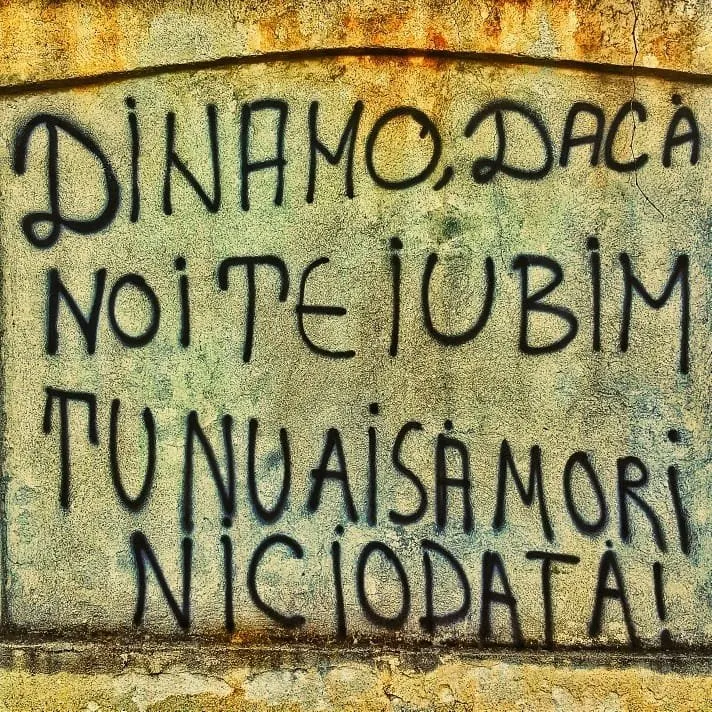 DiNAMO, DACĂ
NOi TE iUBiM
TU NU Ai SĂ MORi
NiCiODATĂ!